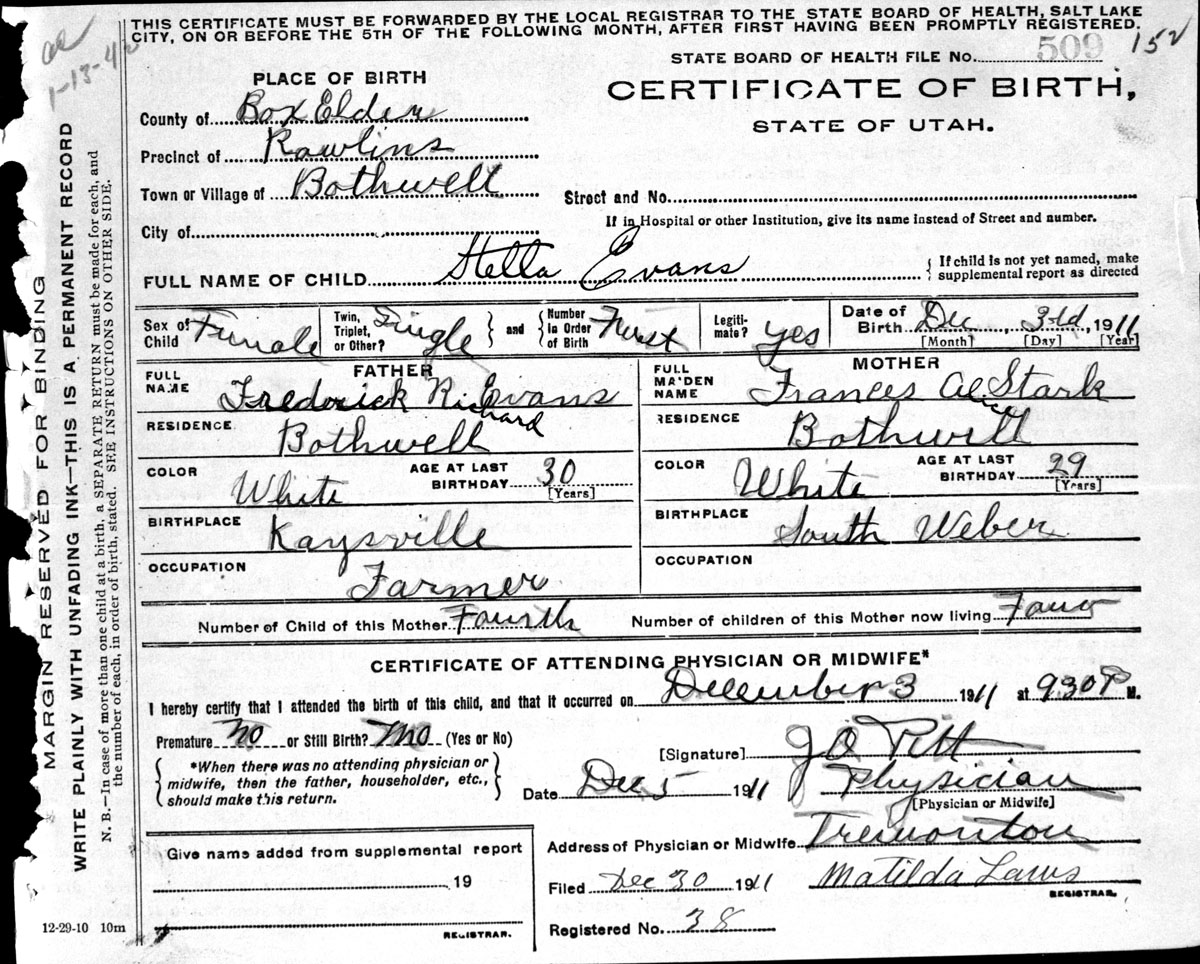 THIS CERTIFICATE MUST BE FORWARDED BY THE LOCAL REGISTRAR TO THE STATE BOARD OF HEALTH, SALT LAKE
CITY, ON OR BEFORE THE 5TH OF THE FOLLOWING MONTH, AFTER FIRST HAVING BEEN PROMPTLY REGISTERED.
1-13-42
STATE BOARD OF HEALTH FILE No. 509 152
PLACE OF BIRTH
CERTIFICATE OF BIRTH,
STATE OF UTAH.
County of Box Elder
Precinct of Rawlins
Town or Village of Bothwell
Street and No.
If in Hospital or other Institution, give its name instead of Street and number.
City of
FULL NAME OF CHILD Stella Evans
{ If child is not yet named, make
supplemental report as directed
Sex of Child Female
Twin, Triplet, or Other? Single } and { Number in Order of Birth First
Legitimate? yes
Date of Birth Dec, 3rd, 1911
[Month] [Day] [Year]
FATHER
FULL NAME Frederick Richard Evans
RESIDENCE Bothwell
COLOR White AGE AT LAST BIRTHDAY 30
[Years]
BIRTHPLACE Kaysville
OCCUPATION Farmer
MOTHER
FULL MAIDEN NAME Frances Stark
RESIDENCE Bothwell
COLOR White AGE AT LAST BIRTHDAY 29
[Years]
BIRTHPLACE South Weber
OCCUPATION
Number of Child of this Mother Fourth Number of children of this Mother now living Four
CERTIFICATE OF ATTENDING PHYSICIAN OR MIDWIFE*
I hereby certify that I attended the birth of this child, and that it occurred on December 3 1911 at 930 P M.
Premature No or Still Birth? No (Yes or No)
{ *When there was no attending physician or
midwife, then the father, householder, etc.,
should make this return. }
[Signature] J O Pitt
Date Dec 5 1911 Physician
[Physician or Midwife]
Address of Physician or Midwife Tremonton
Filed Dec 30 1911 Matilda
REGISTRAR.
Registered No. 38
Give name added from supplemental report
19
REGISTRAR.
12-29-10 10m
MARGIN RESERVED FOR BINDING
WRITE PLAINLY WITH UNFADING INK—THIS IS A PERMANENT RECORD
N. B.—In case of more than one child at a birth, a SEPARATE RETURN must be made for each, and
the number of each, in order of birth, stated. SEE INSTRUCTIONS ON OTHER SIDE.